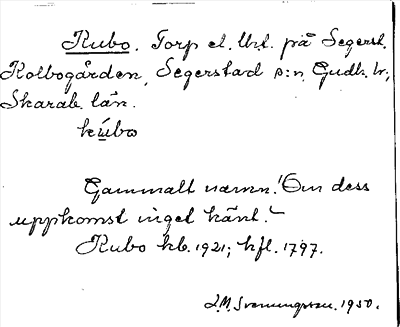 Kubo. Torp el. lht. på Segerst.
Kolbogården, Segerstad s:n, Gudh. hr;
Skarab. län.
kúbo
Gammalt namn. "Om dess
uppkomst inget känt."
Kubo hb. 1921; hfl. 1797.
J.M. Svenungsson. 1950.